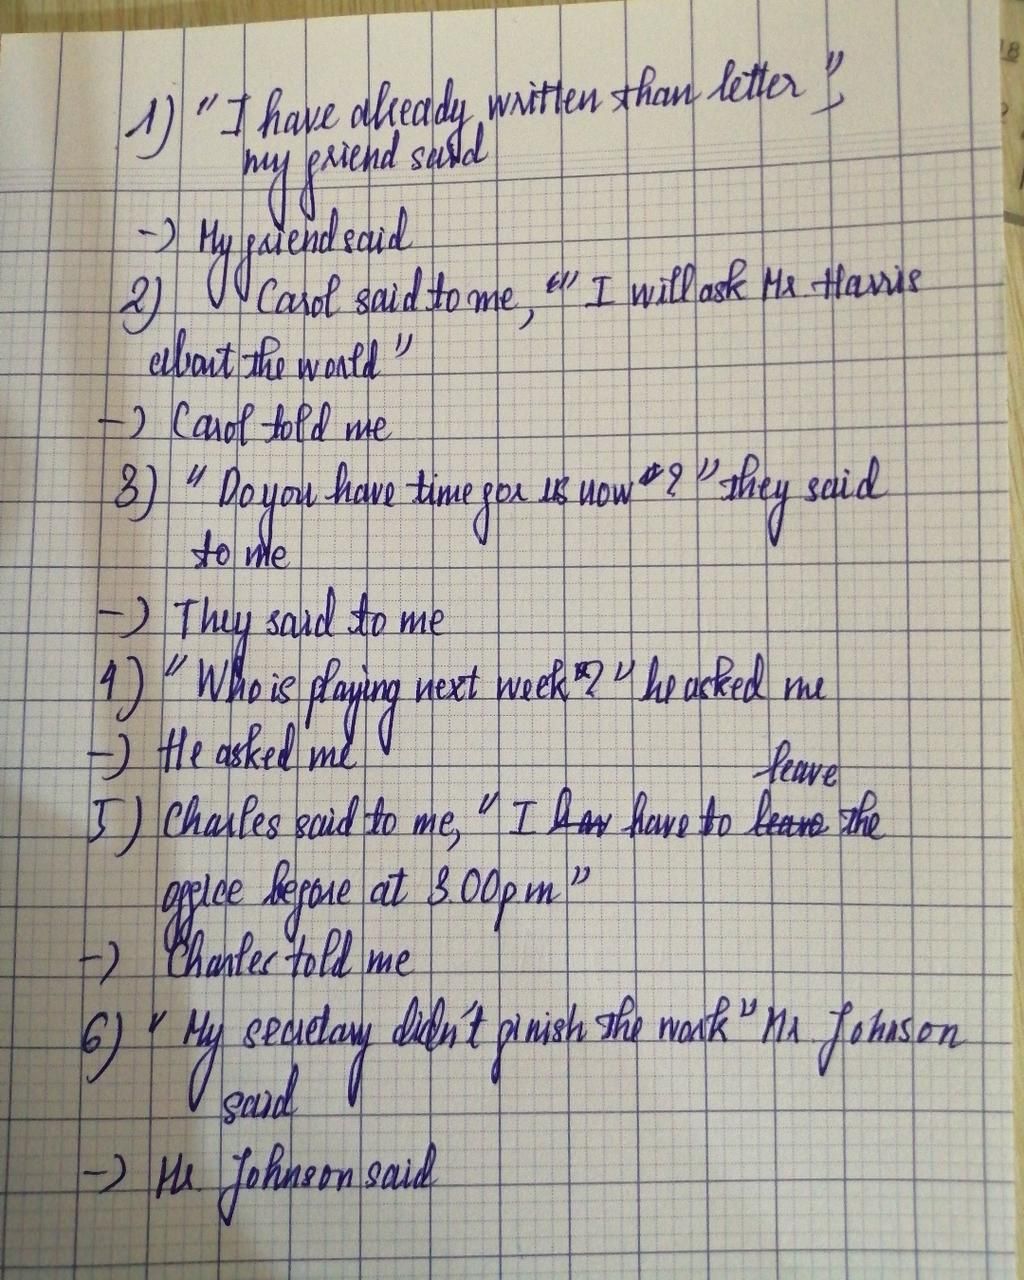 1) "I have already written than letter",
my friend said
-) My friend said
2) Carol said to me, "I will ask Mr. Harris
about the world"
-) Carol told me
3) "Do you have time for us now?" they said
to me
-) They said to me
4) "Who is playing next week?" he asked me
-) He asked me
leave
5) Charles said to me, "I have to the
office before at 3.00pm"
-) Charles told me
6) "My secretary didn't finish the work" Mr Johnson
said
-) Mr. Johnson said